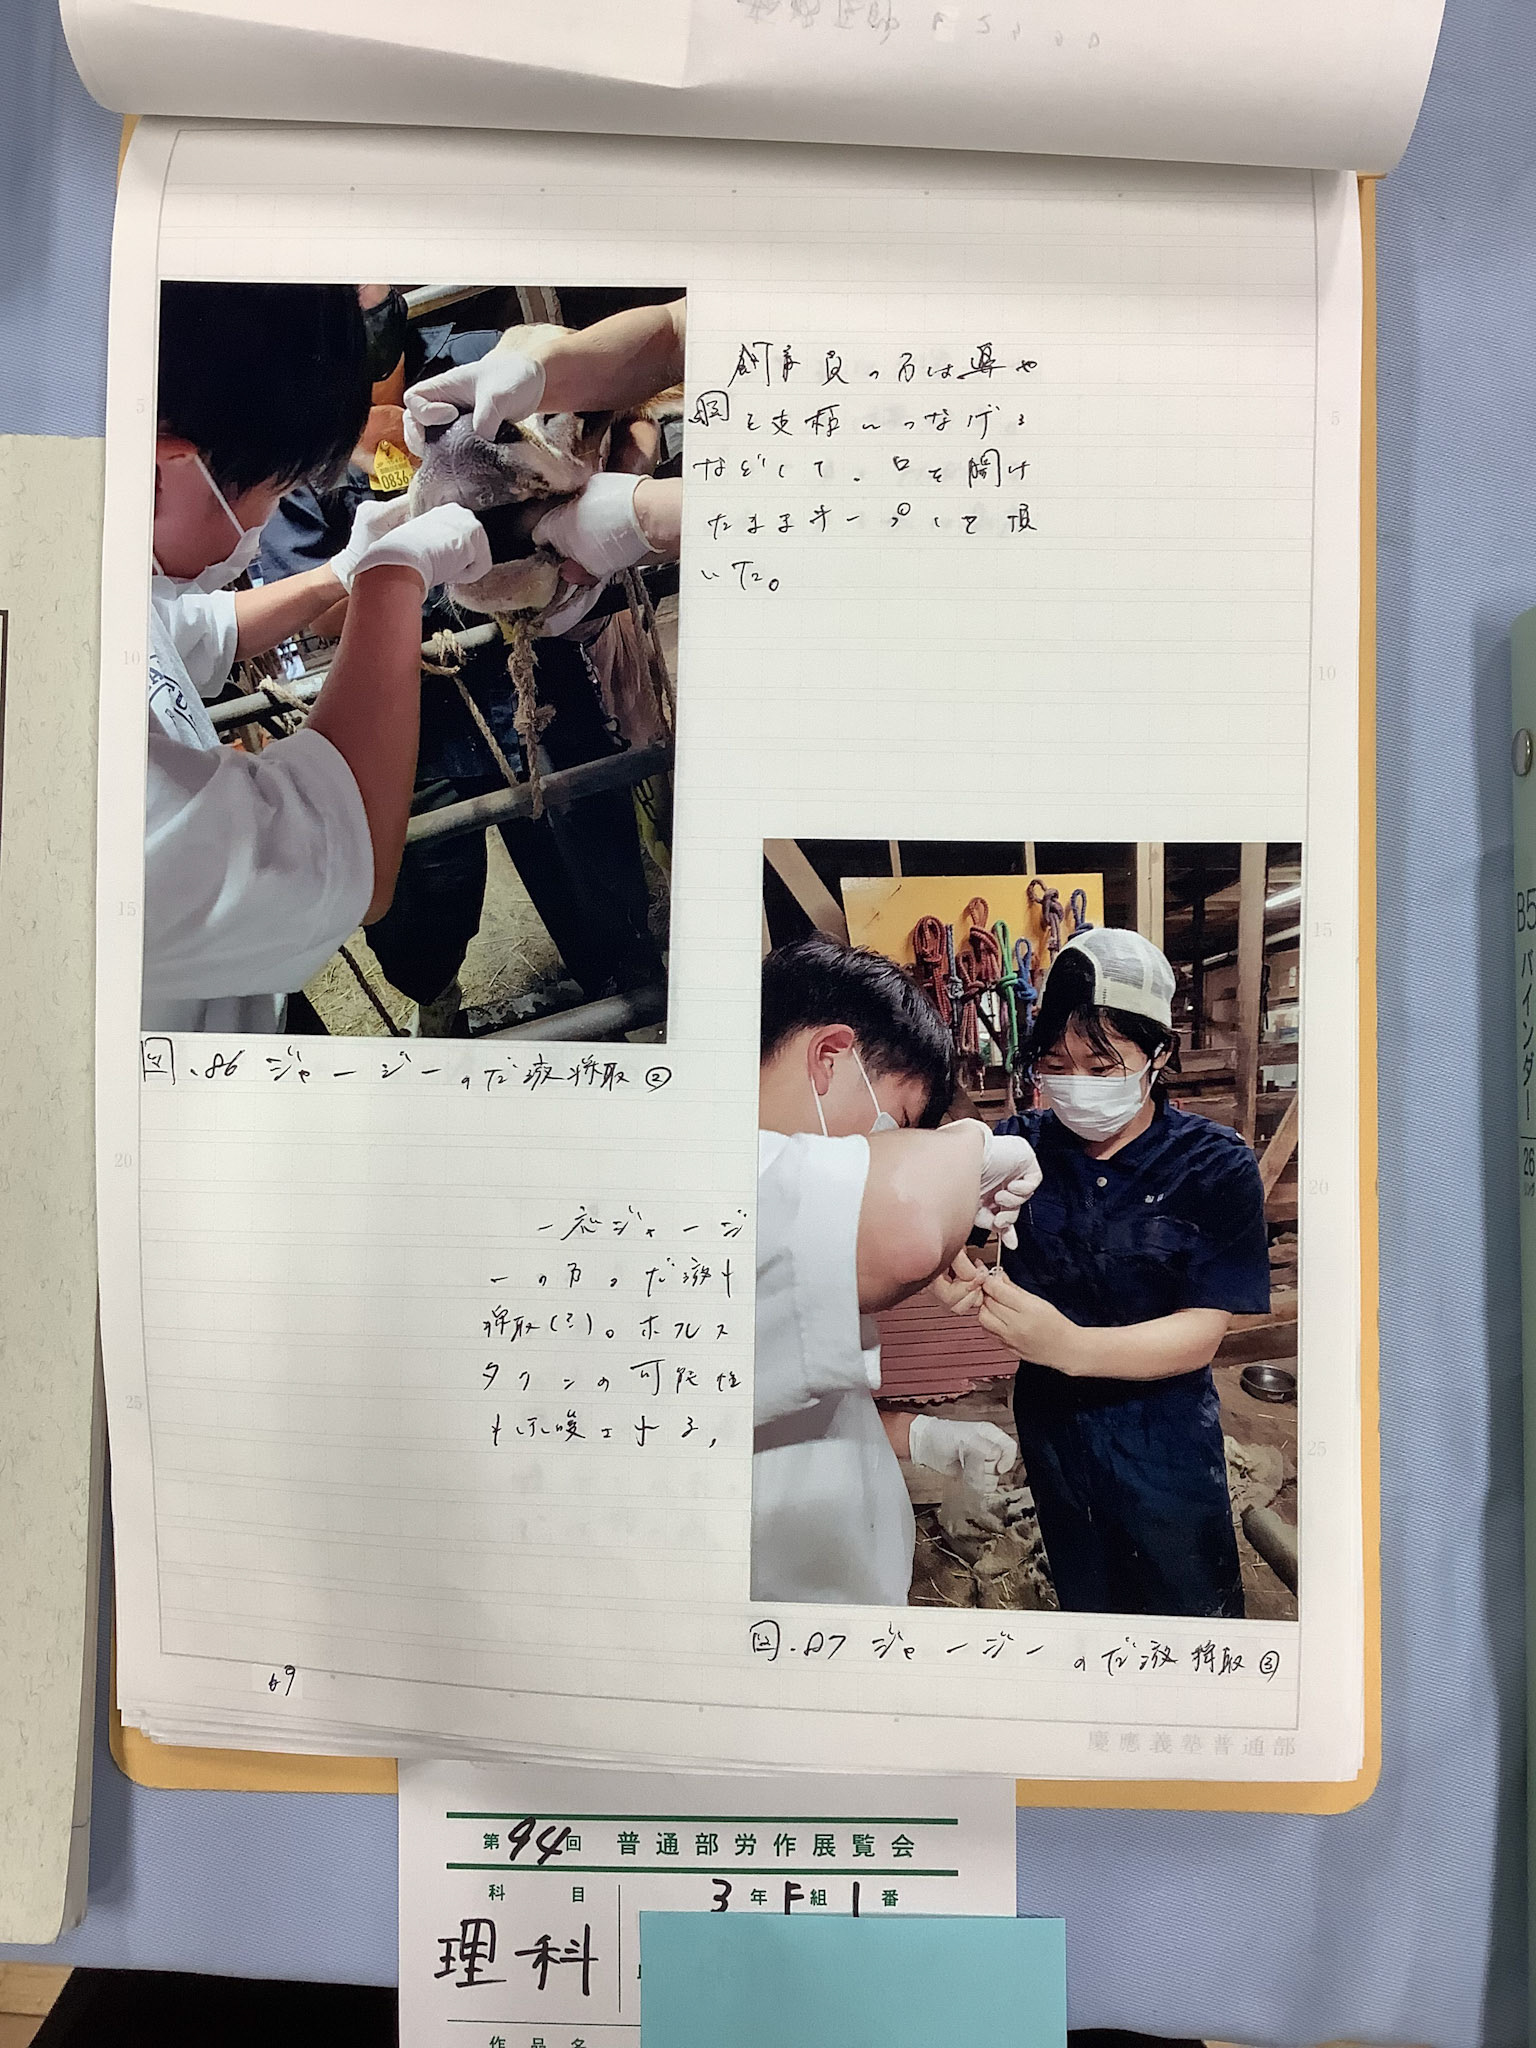 飼育員の方は鼻や
を支柱につなげる
などして、口を開け
たままキープして頂
いた。
0836
図.86 ジャージーのだ液採取②
一応ジャージ
ーの方のだ液も
採取(?)。ホルス
タインの可能性
も示唆される,
図.87 ジャージーのだ液採取③
69
慶應義塾普通部
第94回 普通部労作展覧会
科目 3年F組1番
理科
作品名
5
10
15
20
25
5
10
15
20
25
B5
バインダー
26